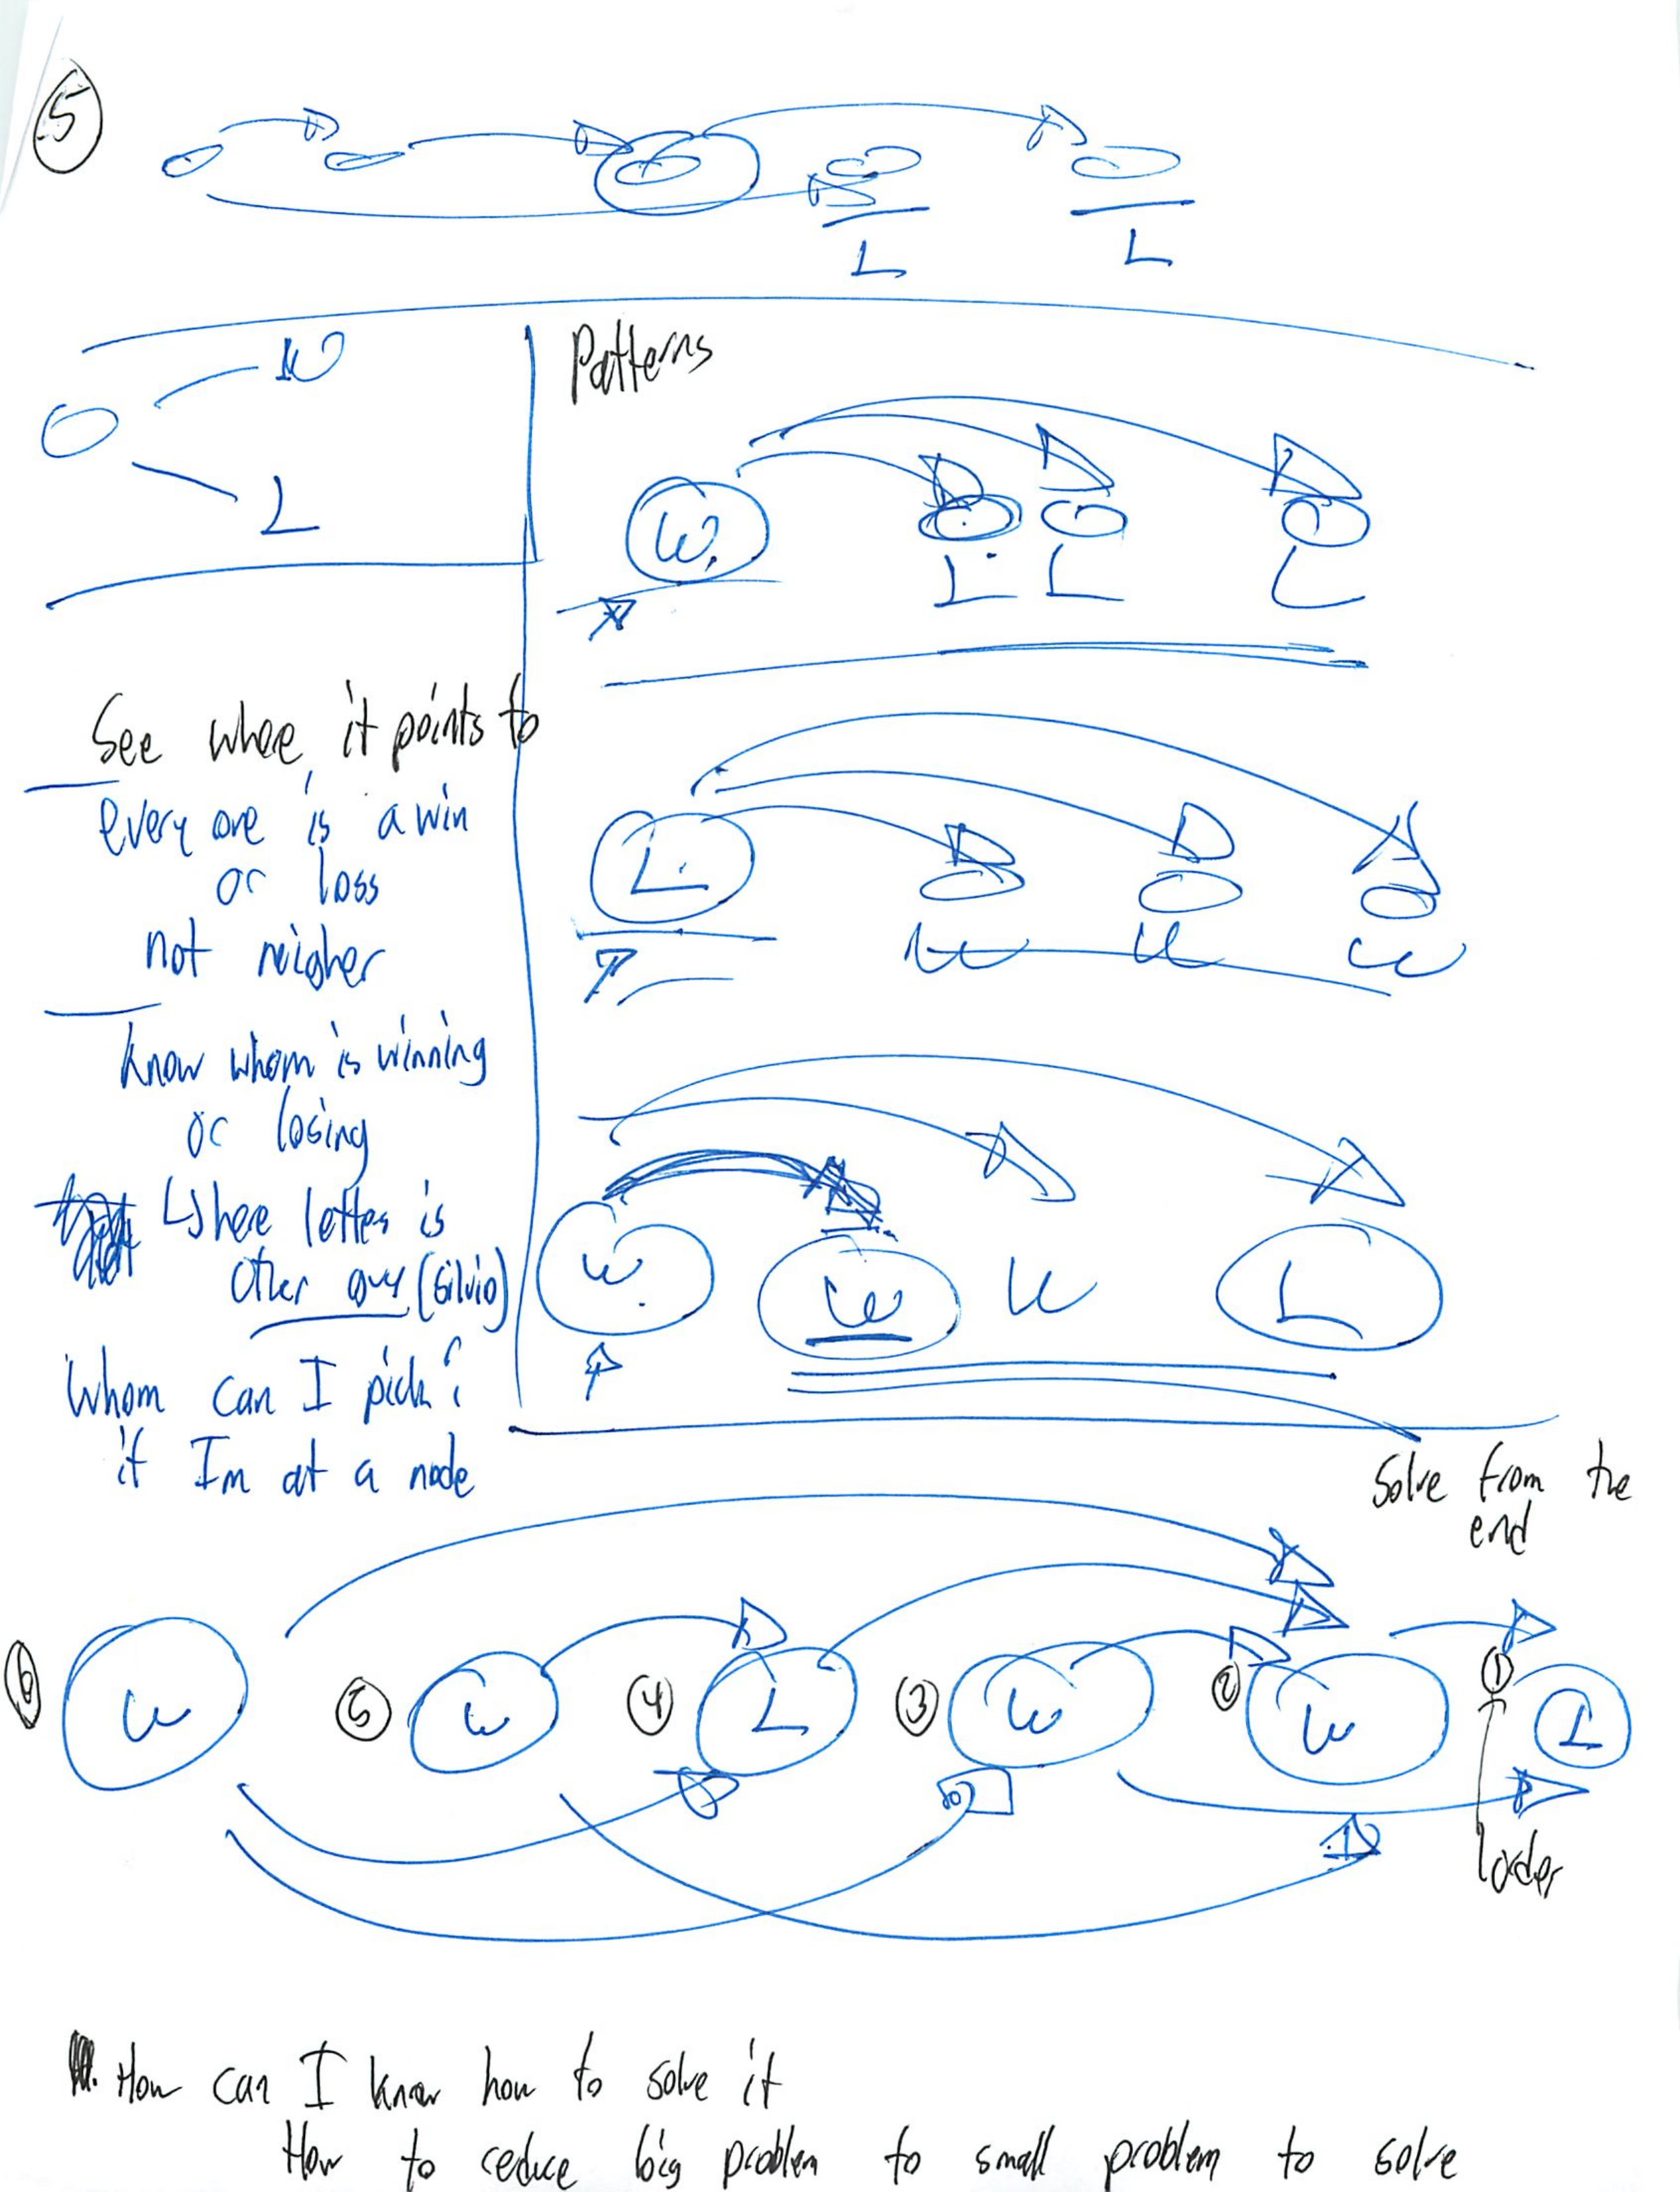 5
L L
W
L
Patterns
W
L L L
See where it points to
every one is a win
or loss
not neigher
L
W W W
Know whom is winning
or losing
Where letter is
other guy (Silvio)
W W W L
Whom can I pick?
if Im at a node
Solve from the
end
6 W 5 W 4 L 3 W 2 W 1 L
How can I know how to solve it
How to reduce big problem to small problem to solve